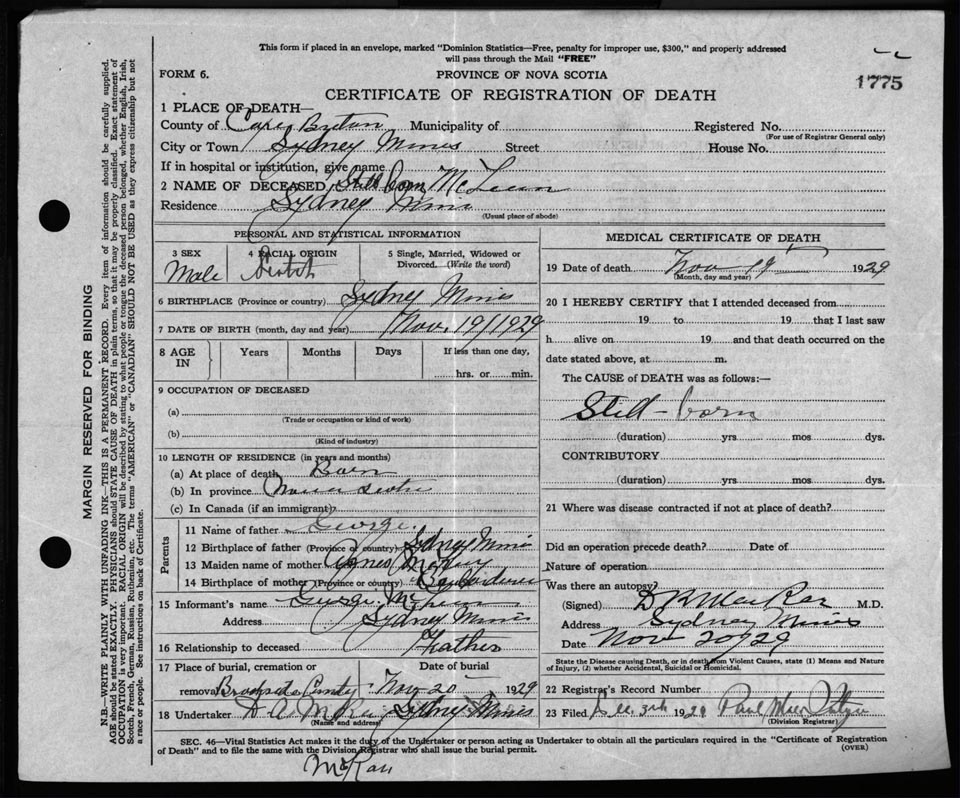 This form if placed in an envelope, marked "Dominion Statistics—Free, penalty for improper use, $300," and properly addressed
will pass through the Mail "FREE"
FORM 6. PROVINCE OF NOVA SCOTIA 1775
CERTIFICATE OF REGISTRATION OF DEATH
1 PLACE OF DEATH—
County of Cape Breton Municipality of Registered No.
(For use of Registrar General only)
City or Town Sydney Mines Street House No.
If in hospital or institution, give name
2 NAME OF DECEASED Still born McLean
Residence Sydney Mines
(Usual place of abode)
PERSONAL AND STATISTICAL INFORMATION
3 SEX 4 RACIAL ORIGIN 5 Single, Married, Widowed or
Divorced. (Write the word)
Male Scotch
6 BIRTHPLACE (Province or country) Sydney Mines
7 DATE OF BIRTH (month, day and year) Nov. 19/1929
8 AGE IN Years Months Days If less than one day,
hrs. or min.
9 OCCUPATION OF DECEASED
(a)
(Trade or occupation or kind of work)
(b)
(Kind of industry)
10 LENGTH OF RESIDENCE (in years and months)
(a) At place of death Born
(b) In province Nova Scotia
(c) In Canada (if an immigrant)
Parents
11 Name of father George
12 Birthplace of father (Province or country) Sydney Mines
13 Maiden name of mother Agnes
14 Birthplace of mother (Province or country)
15 Informant's name George McLean
Address Sydney Mines
16 Relationship to deceased Father
17 Place of burial, cremation or Date of burial
removal Nov 20 1929
18 Undertaker D A Sydney Mines
(Name and address)
MEDICAL CERTIFICATE OF DEATH
19 Date of death Nov 19 1929
(Month, day and year)
20 I HEREBY CERTIFY that I attended deceased from
19 to 19 that I last saw
h alive on 19 and that death occurred on the
date stated above, at m.
The CAUSE of DEATH was as follows:—
Still-born
(duration) yrs mos dys.
CONTRIBUTORY
(duration) yrs mos dys.
21 Where was disease contracted if not at place of death?
Did an operation precede death? Date of
Nature of operation
Was there an autopsy?
(Signed) M.D.
Address Sydney Mines
Date Nov 20/29
State the Disease causing Death, or in death from Violent Causes, state (1) Means and Nature
of Injury, (2) whether Accidental, Suicidal or Homicidal.
22 Registrar's Record Number
23 Filed Dec. 3rd 1929 Paul
(Division Registrar)
SEC. 46—Vital Statistics Act makes it the duty of the Undertaker or person acting as Undertaker to obtain all the particulars required in the "Certificate of Registration
of Death" and to file the same with the Division Registrar who shall issue the burial permit. (OVER)
MARGIN RESERVED FOR BINDING
N.B.—WRITE PLAINLY WITH UNFADING INK—THIS IS A PERMANENT RECORD. Every item of information should be carefully supplied.
AGE should be stated EXACTLY. PHYSICIANS should STATE CAUSE OF DEATH in plain terms, so that it may be properly classified. Exact statement of
OCCUPATION is very important. RACIAL ORIGIN will be described by stating to what people or tongue the deceased person belonged, whether English, Irish,
Scotch, French, German, Russian, Ruthenian, etc. The terms "AMERICAN" or "CANADIAN" SHOULD NOT BE USED as they express citizenship but not
a race or people. See instructions on back of Certificate.